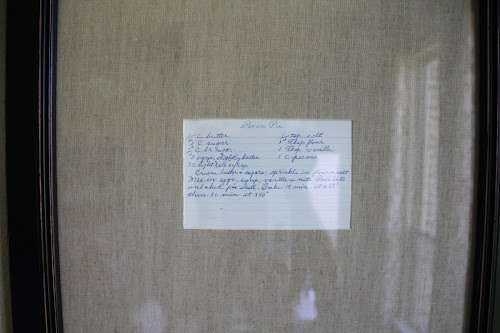 Pecan Pie
C butter
C sugar
C br sugar
3 eggs slightly beaten
1 C light Karo syrup
tsp salt
1 Tbsp flour
1 Tsp vanilla
1 C pecans
Cream butter & sugars. sprinkle in flour & salt
Mix in eggs, syrup, vanilla & nuts. Pour into
unbaked pie shell. Bake 15 min at
then 30 min at 350°